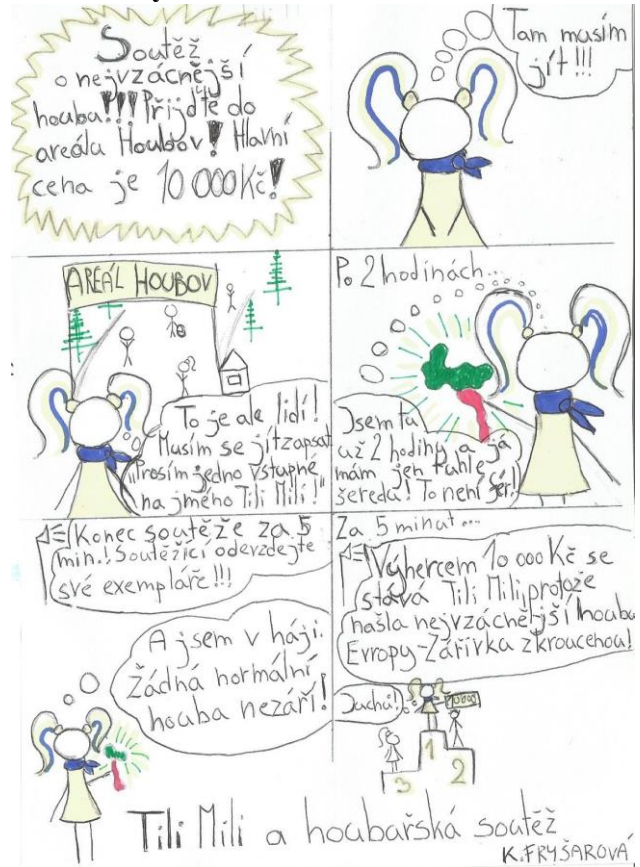 Soutěž
o nejvzácnější
houba!!! Přijďte do
areálu Houbov! Hlavní
cena je 10 000 Kč!
Tam musím
jít!!!
AREÁL HOUBOV
To je ale lidí!
Musím se jít zapsat
"Prosím jedno vstupné
na jméno Tili Mili!"
Po 2 hodinách...
Jsem tu
už 2 hodiny a já
mám jen tuhle
šeredu! To není fér!
Konec soutěže za 5
min.! Soutěžící odevzdejte
své exempláře!!!
A jsem v háji.
Žádná normální
houba nezáří!
Za 5 minut...
Výhercem 10 000 Kč se
stává Tili Mili, protože
našla nejvzácnější houbu
Evropy-Zářivka zkroucenou!
Juchů!
10 000
1
2
3
Tili Mili a houbařská soutěž
K. FRYŠAROVÁ